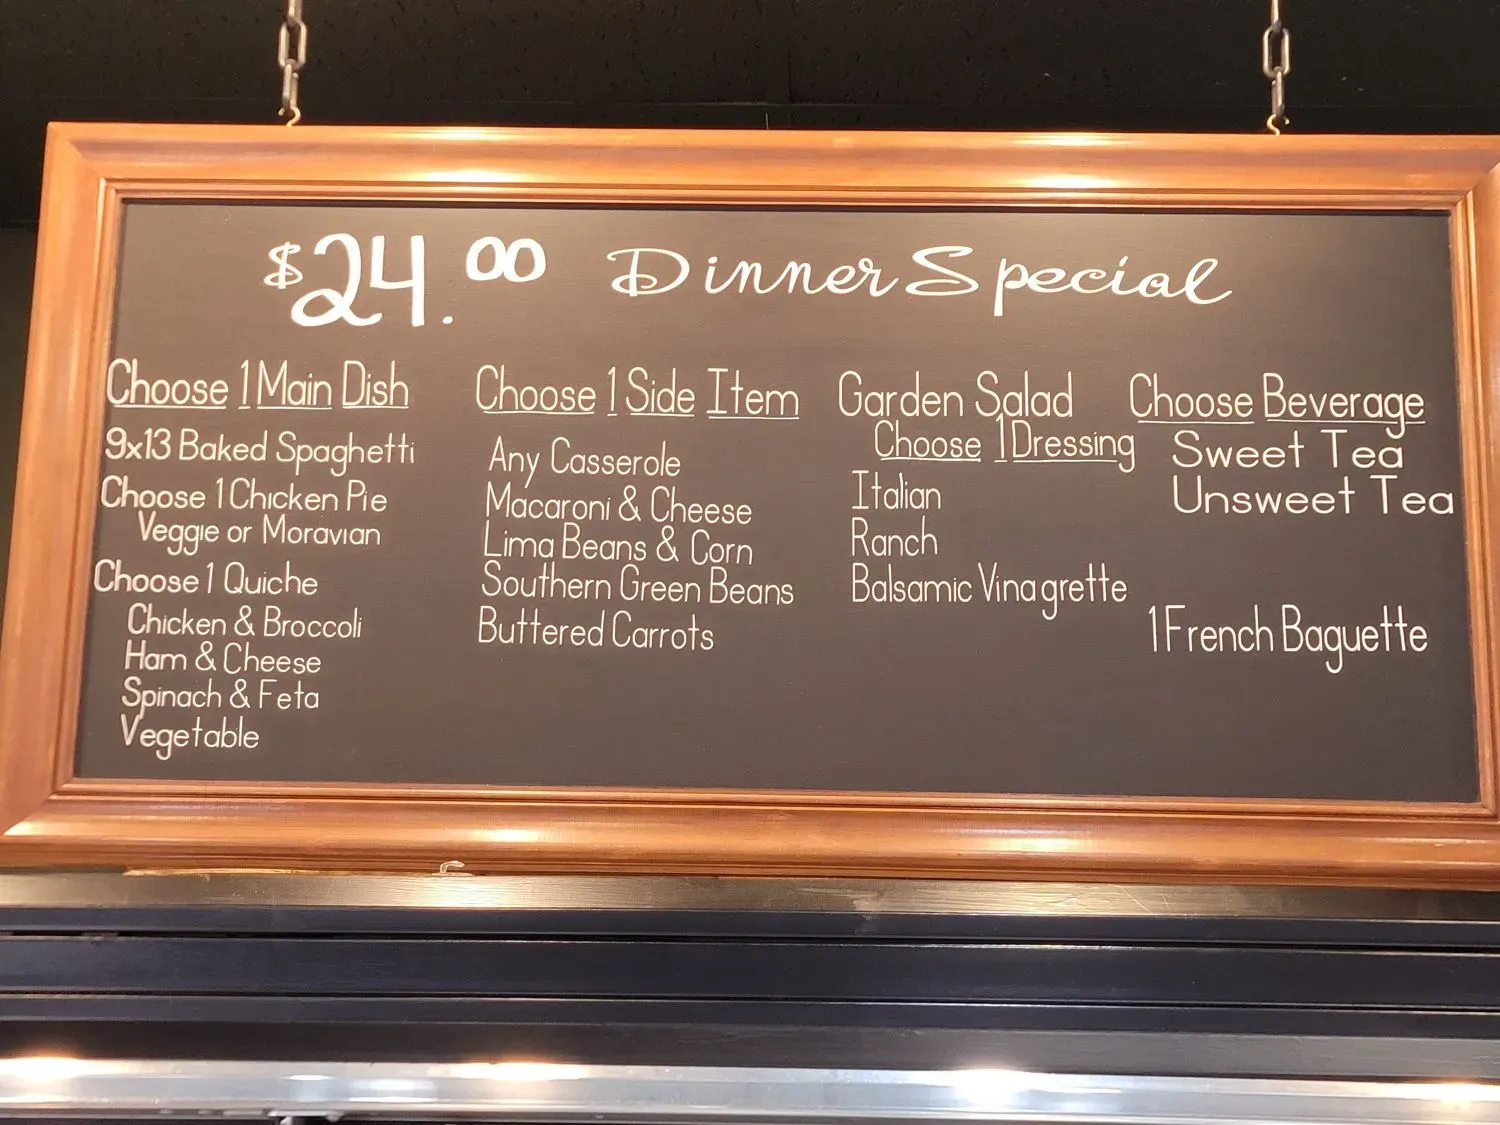 $24.00 Dinner Special
Choose 1 Main Dish
9x13 Baked Spaghetti
Choose 1 Chicken Pie
Veggie or Moravian
Choose 1 Quiche
Chicken & Broccoli
Ham & Cheese
Spinach & Feta
Vegetable
Choose 1 Side Item
Any Casserole
Macaroni & Cheese
Lima Beans & Corn
Southern Green Beans
Buttered Carrots
Garden Salad
Choose 1 Dressing
Italian
Ranch
Balsamic Vinagrette
Choose Beverage
Sweet Tea
Unsweet Tea
1 French Baguette